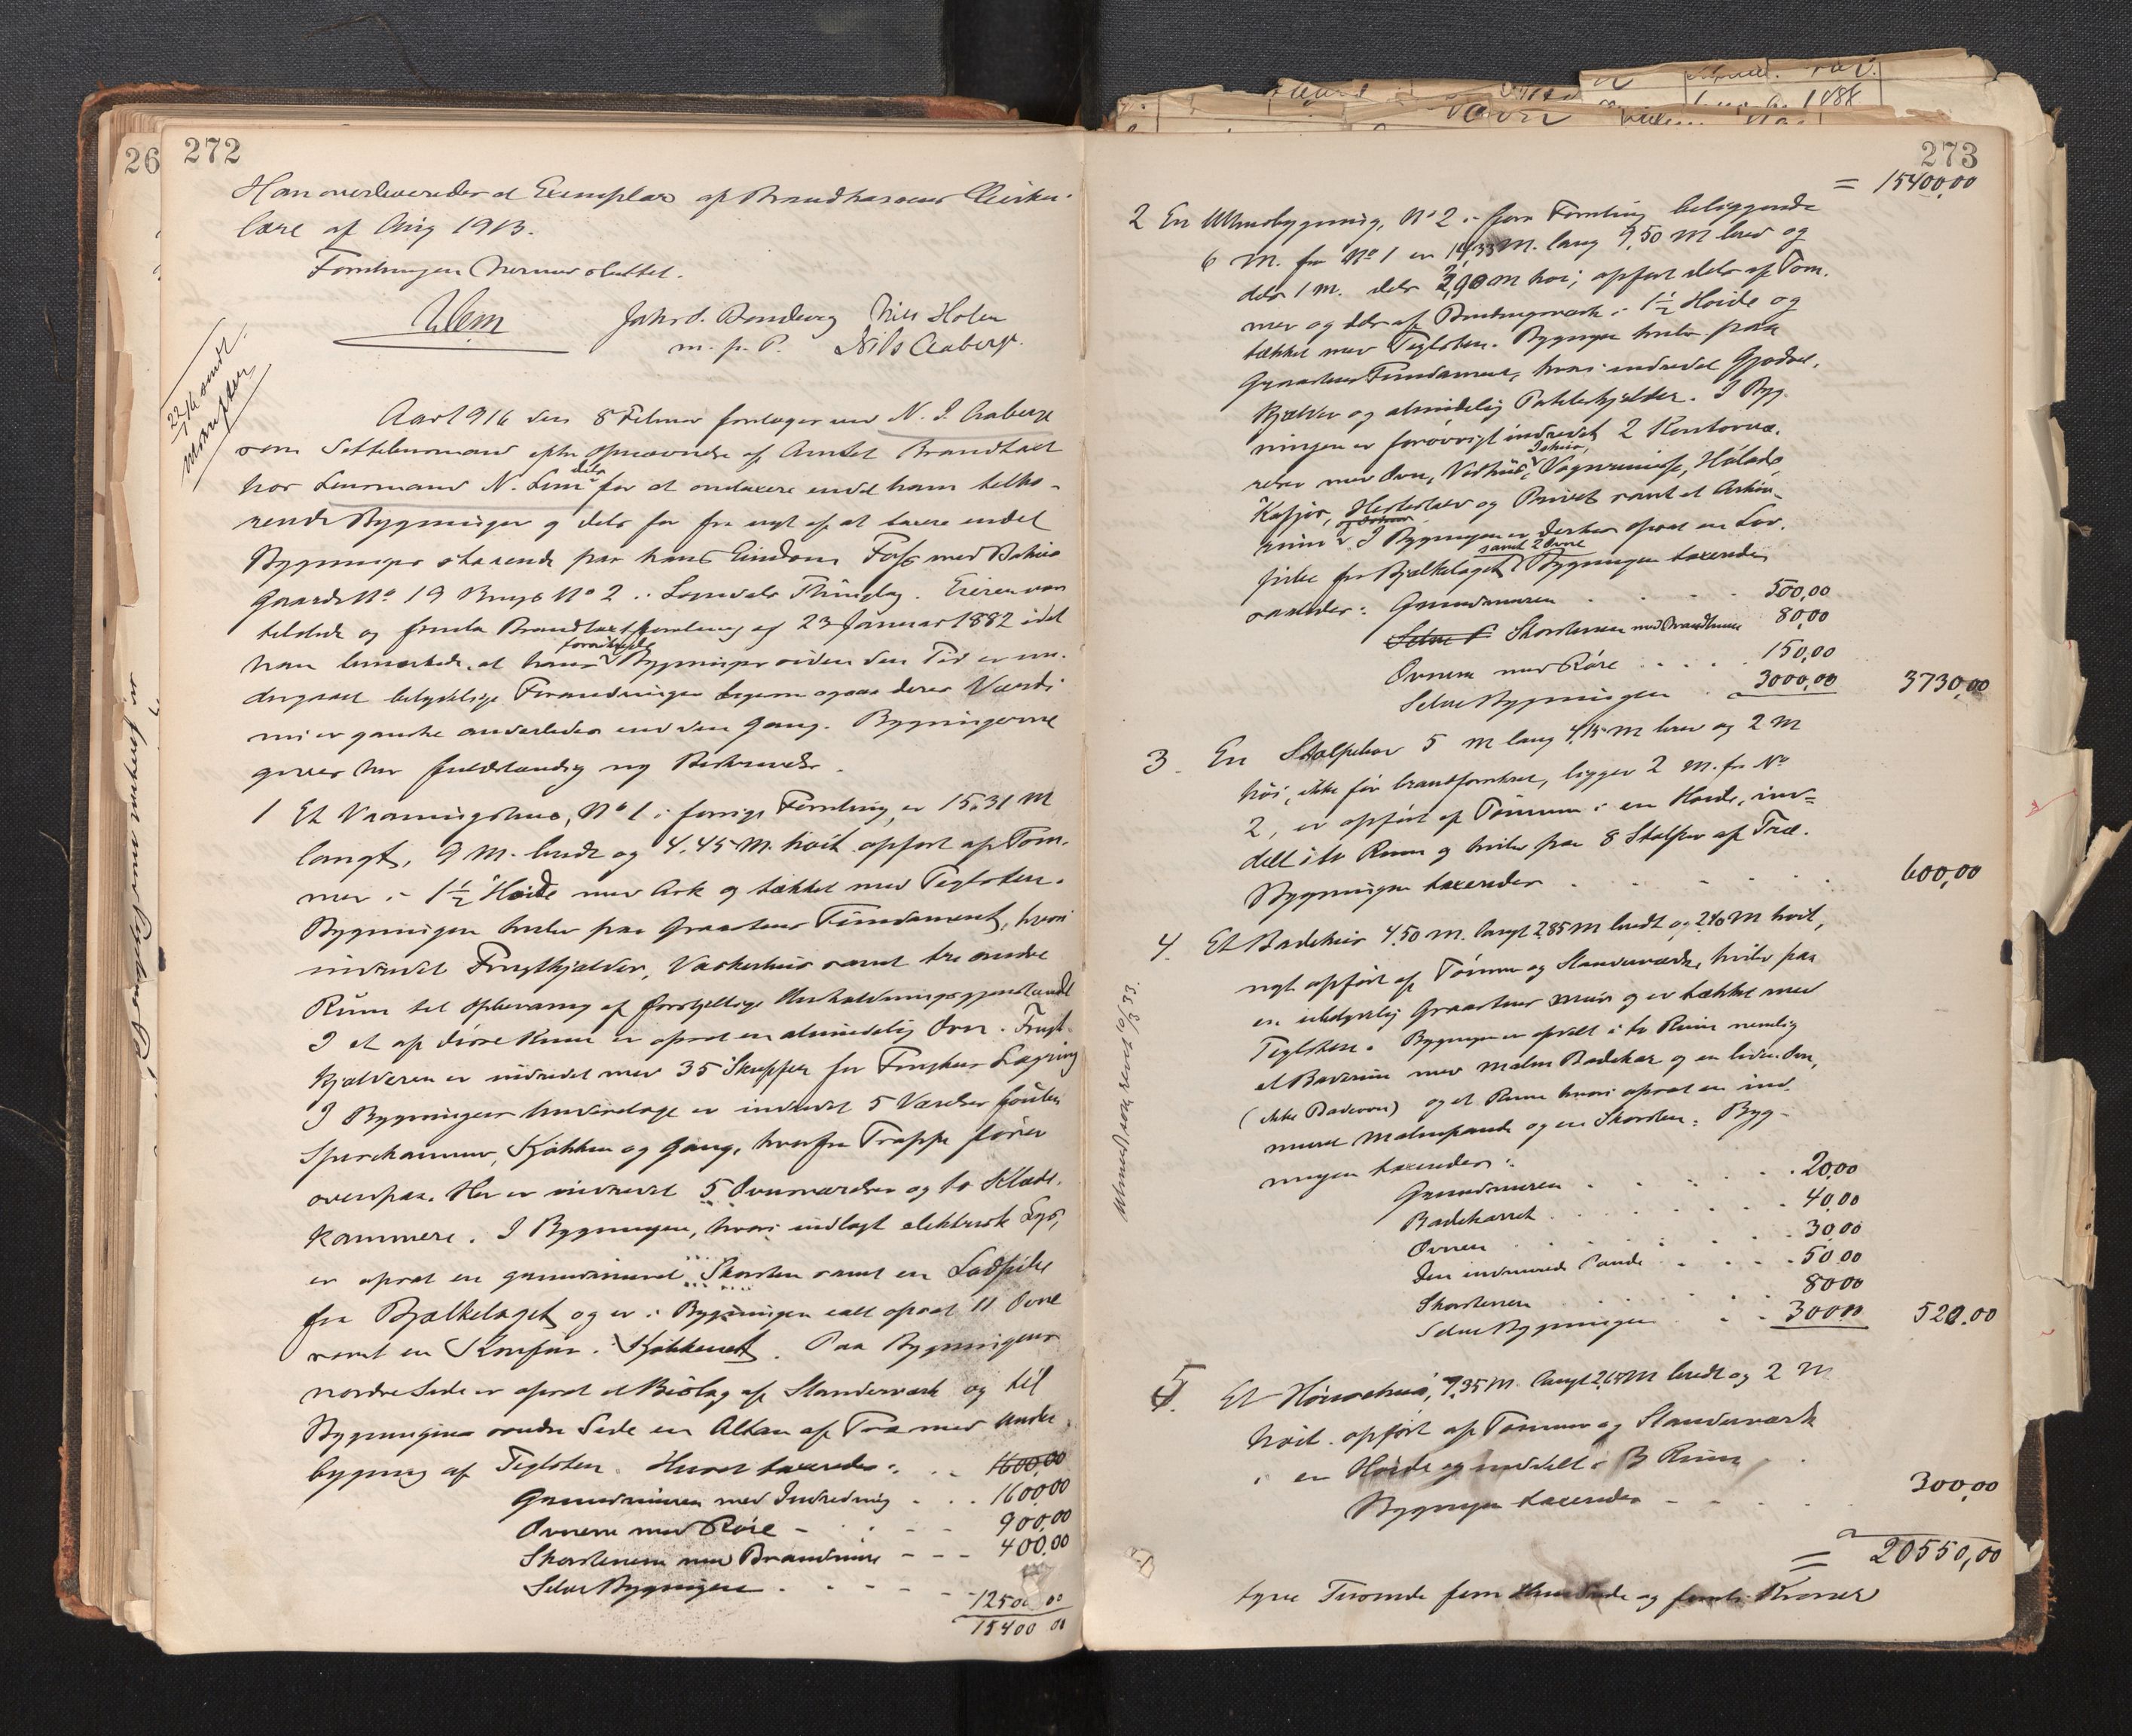 272
Han overleveredes et Exemplar af Brandkassens Cirku-
lære af Aug 1913.
Forretningen hermed sluttet.
Ulem Jakob S. Sonderg Nils Holen
m. p. P. Nils Aaberge.
22/2 16 sendt
udskrifter
Aar 1916 den 8 Februar foretoges ved N. I. Aaberge
som Settelensmand efter Opnævnelse af Amtet Brandtaxt
hos Lensmand N. Lem dels for at omtaxere endel ham tilhø-
rende Bygninger og dels for fra nyt af at taxere endel
Bygninger staaende paa hans Eiendom Foss med Bakke
Gaards No 19 Brugs No 2 i Sogndals Thinglag. Eieren var
tilstede og fremla Brandtaxtforretning af 23 Januar 1882 idet
han bemærkede, at hans forsikrede Bygninger siden den Tid er un-
dergaaet betydelige Forandringer ligesom ogsaa deres Værdi
nu er ganske anderledes end den Gang. Bygningerne
gives her fuldstændig ny Beskrivelse.
1 Et Vaaningshus, No 1 i forrige Forretning, er 15,31 M
langt, 9 M. bredt og 4.45 M. høit opført af Tøm-
mer i 1½ Høide med Ark og tækket med Teglsten.
Bygningen hviler paa Graastens Fundament, hvori
indredet Frugtkjælder, Vaskehus samt tre andre
Rum til Opbevaring af forskjellige Husholdningsgjenstande
I et af disse Rum er opsat en almindelig Ovn. Frugt-
kjælderen er indredet med 35 Skuffer for Frugters Lagring
I Bygningens Underetage er indredet 5 Værelser foruden
Spisekammer, Kjøkken og Gang, hvorfra Trappe fører
ovenpaa. Her er indredet 5 Ovnsværelser og to Klæde-
kammere. I Bygningen, hvori indlagt elektrisk Lys,
er opsat en grundmuret Skorsten samt en Lodpibe
fra Bjælkelaget og er i Bygningen ialt opsat 11 Ovne
samt en Komfur i Kjøkkenet. Paa Bygningens
nordre Side er opsat et Bislag af Standerværk og til
Bygningens søndre Side en Altan af Træ med Under-
bygning af Teglsten. Huset taxeredes: . . 1600,00
Grundmuren med Indredning . . . 1600,00
Ovnene med Röre - . - - 900,00
Skorstenene med Brandmure - - - 400,00
Selve Bygningen . . - - - 12500,00
15400 00
273
= 15400,00
2 En Uthusbygning, No 2 i forr Forretning beliggende
6 M. fra No 1 er 14,33 M. lang 9,50 M bred og
dels 1 M. dels 2,90 M høi, opført dels af Tøm-
mer og dels af Bindingsværk i 1½ Høide og
tækket med Teglsten. Bygningen hviler paa
Graastens Fundament, hvori indredet Gjødsel-
kjælder og almindelig Potetkjelder. I Byg-
ningen er forøvrigt indredet 2 Kontorvæ-
relser med Ovn, Vedhus, Ishus, Vognremisse, Hølade,
Kafjøs, Hestestald og Privet samt et Arkiv-
rum. I Bygningen er desuden opsat en Lod-
pibe fra Bjælkelaget samt 2 Ovne Bygningen taxeredes
saaledes: Grundmuren . . . . 500,00
Selve B Skorstenen med Brandmur 80,00
Ovnene med Röre . . . . 150,00
Selve Bygningen . 3000,00 3730,00
3. En Stolpebod 5 M lang 4,15 M bred og 2 M
høi, ikke før brandforsikret, ligger 2 M. fra No
2, er opført af Tömmer i en Høide, ind-
delt i to Rum og hviler paa 8 Stolper af Træ.
Bygningen taxeredes . . . - - . 600,00
4. Et Badehus 4,50 M. langt 2,85 M bredt og 2,40 M høit,
nyt opført af Tömmer og Standerværk, hviler paa
en ubetydelig Graastens Mur og er tækket med
Teglsten. Bygningen er opdelt i to Rum nemlig
et Baderum med Malm Badekar og en liden Ovn,
(ikke Badeovn) og et Rum hvori opsat en ind-
muret Malmpande og en Skorsten. Byg-
ningen taxeredes:
Grundmuren . . . . 20,00
Badekarret . . . . . 40,00
Ovnen . . . . . 30,00
Den indmurede Pande . . . 50,00
Skorstenen . . . . 80,00
Selve Bygningen . . 300,00 520.00
5. Et Hönsehus, 7,35 M. langt 2,65 M bredt og 2 M
høit. opført af Tømmer og Standerværk
i en Høide og inddelt i 3 Rum
Bygningen taxeredes - - - . 300,00
= 20550,00
tyve Tusende fem Hundrede og femti Kroner